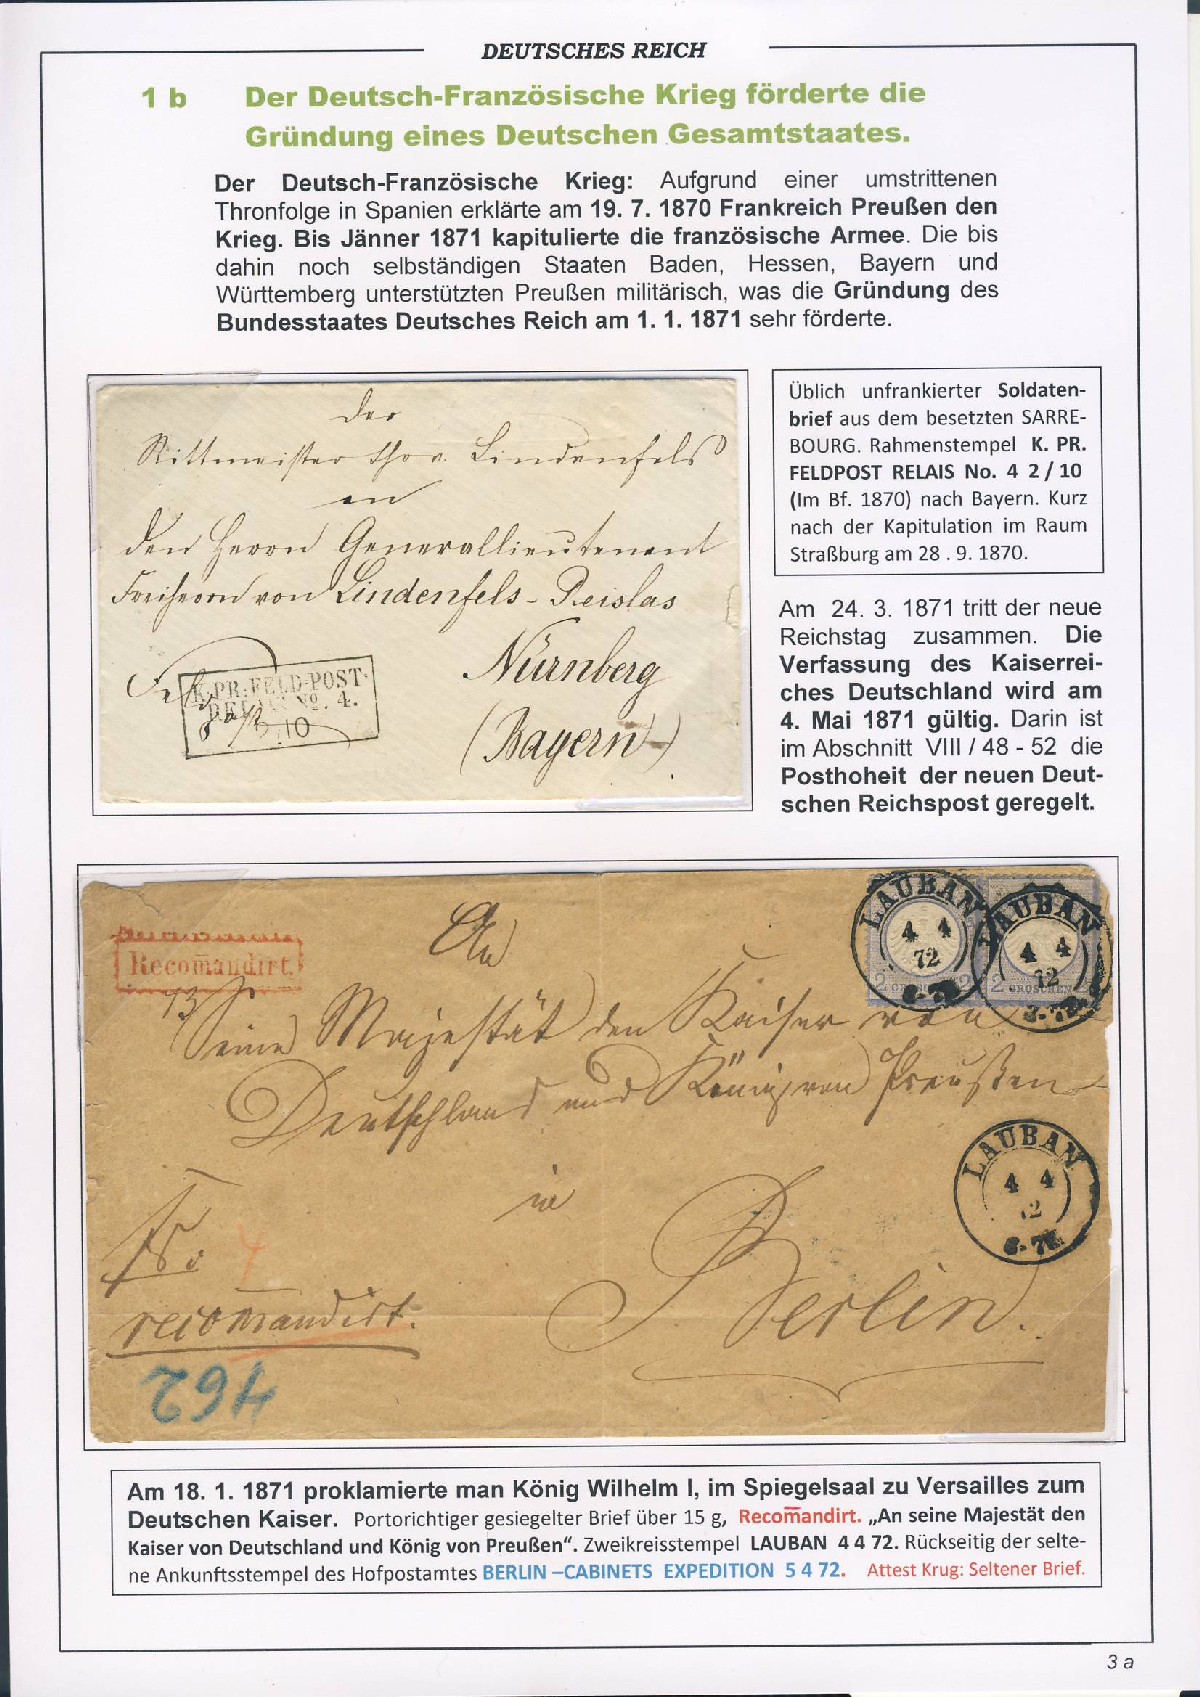 DEUTSCHES REICH
1 b Der Deutsch-Französische Krieg förderte die
Gründung eines Deutschen Gesamtstaates.
Der Deutsch-Französische Krieg: Aufgrund einer umstrittenen
Thronfolge in Spanien erklärte am 19. 7. 1870 Frankreich Preußen den
Krieg. Bis Jänner 1871 kapitulierte die französische Armee. Die bis
dahin noch selbständigen Staaten Baden, Hessen, Bayern und
Württemberg unterstützten Preußen militärisch, was die Gründung des
Bundesstaates Deutsches Reich am 1. 1. 1871 sehr förderte.
Der
Rittmeister Lindenfels
an
den Herrn Generallieutenant
Freiherrn von Lindenfels-Reislas
Nürnberg
(Bayern)
K. PR. FELD-POST-
RELAIS No. 4.
10
Üblich unfrankierter Soldaten-
brief aus dem besetzten SARRE-
BOURG. Rahmenstempel K. PR.
FELDPOST RELAIS No. 4 2/10
(Im Bf. 1870) nach Bayern. Kurz
nach der Kapitulation im Raum
Straßburg am 28 . 9. 1870.
Am 24. 3. 1871 tritt der neue
Reichstag zusammen. Die
Verfassung des Kaiserrei-
ches Deutschland wird am
4. Mai 1871 gültig. Darin ist
im Abschnitt VIII / 48 - 52 die
Posthoheit der neuen Deut-
schen Reichspost geregelt.
LAUBAN
4 4
72
LAUBAN
4 4
72
2 GROSCHEN 2
2 GROSCHEN 2
Recom̅andirt.
An
Seine Majestät den Kaiser von
Deutschland und König von Preußen
in
Berlin.
LAUBAN
4 4
72
Fr.
recomandirt.
294
Am 18. 1. 1871 proklamierte man König Wilhelm I, im Spiegelsaal zu Versailles zum
Deutschen Kaiser. Portorichtiger gesiegelter Brief über 15 g, Recom̅andirt. „An seine Majestät den
Kaiser von Deutschland und König von Preußen“. Zweikreisstempel LAUBAN 4 4 72. Rückseitig der selte-
ne Ankunftsstempel des Hofpostamtes BERLIN –CABINETS EXPEDITION 5 4 72. Attest Krug: Seltener Brief.
3 a